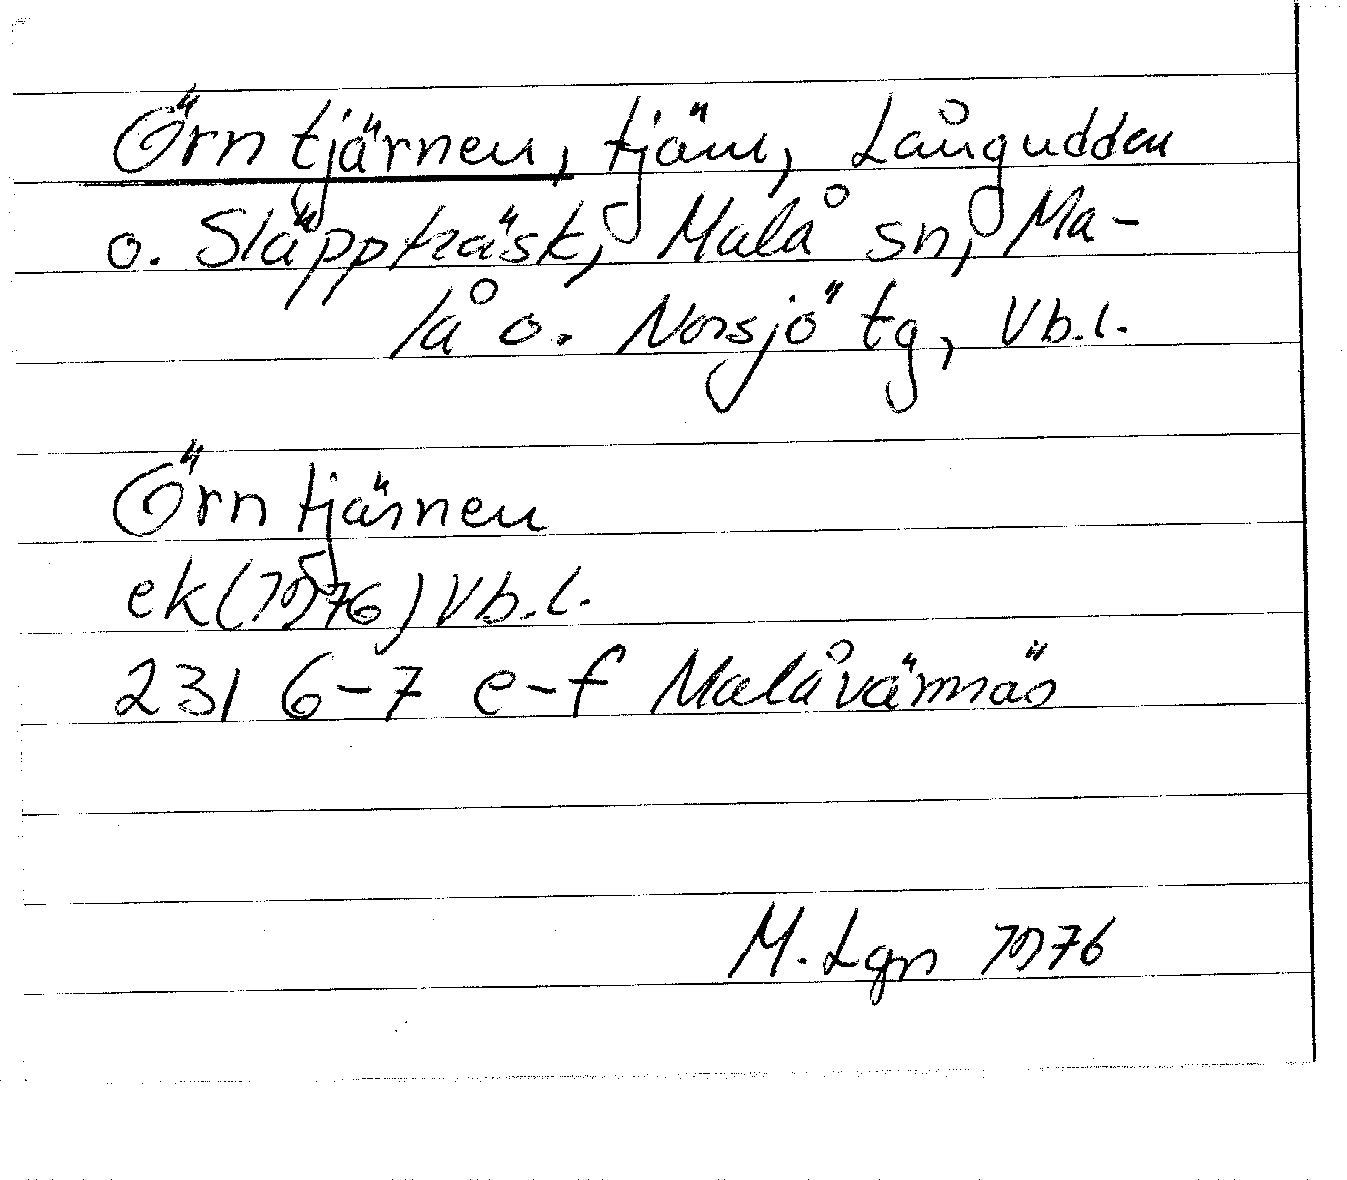 Örntjärnen, tjärn, Långudden
o. Släppträsk, Malå sn, Ma-
lå o. Norsjö tg, Vb.l.
Örntjärnen
ek (1976) Vb.l.
23I 6-7 e-f Malåvännäs
M. Lgn 1976